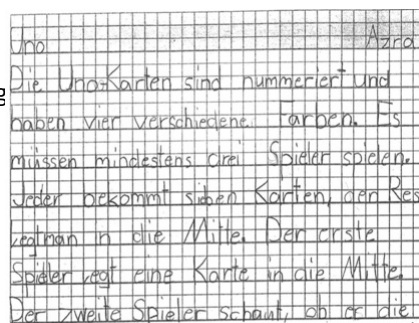 Uno Azra
Die Uno-Karten sind nummeriert und
haben vier verschiedene Farben. Es
müssen mindestens drei Spieler spielen.
Jeder bekommt sieben Karten, den Res
legt man in die Mitte. Der erste
Spieler legt eine Karte in die Mitte.
Der zweite Spieler schaut, ob er die